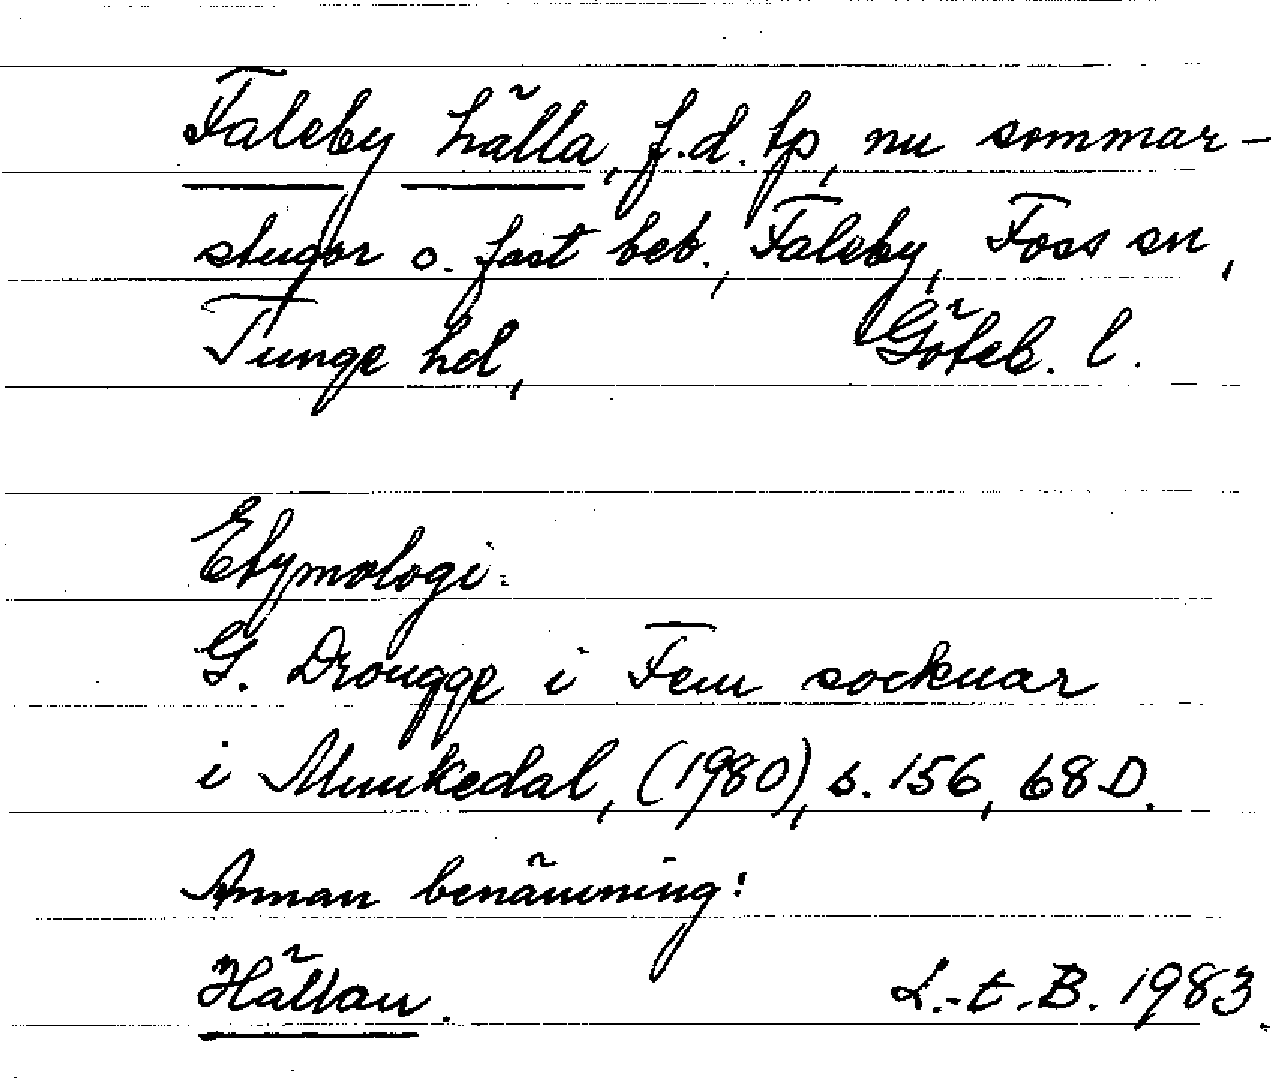 Faleby hälla, f.d. tp, nu sommar-
stugor o. fast beb., Faleby, Foss sn,
Tunge hd, Göteb. l.
Etymologi:
G. Drougge i Fem socknar
i Munkedal, (1980), s. 156, 68 D.
Annan benämning:
Hällan. L.-t.-B. 1983.